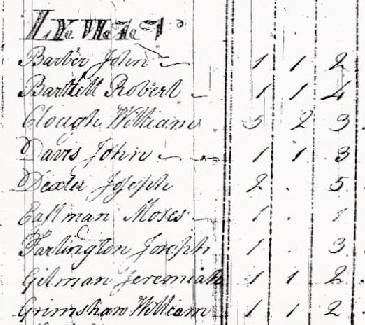 Barber John 1 1 2
Bartlett Robert 1 1 4
Clough William 5 2 3
Davis John 1 1 3
Dexter Joseph 2 . 5
Eastman Moses 1 . 1
Farlington Joseph 1 3
Gilman Jeremiah 1 1 2
Grimsham William 1 1 2